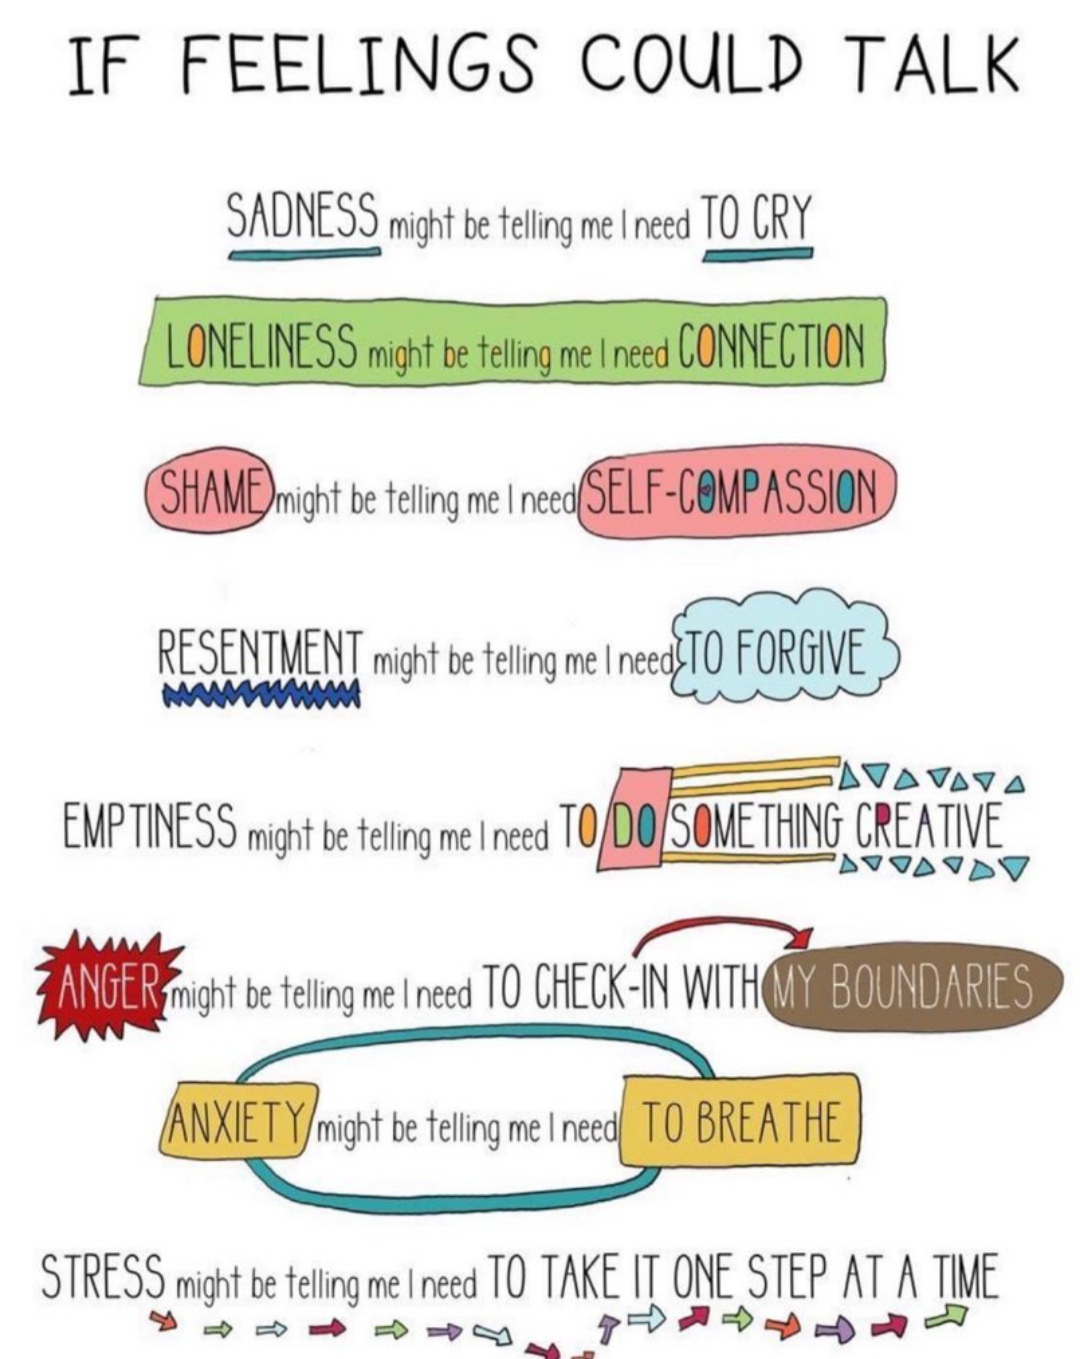 IF FEELINGS COULD TALK
SADNESS might be telling me I need TO CRY
LONELINESS might be telling me I need CONNECTION
SHAME might be telling me I need SELF-COMPASSION
RESENTMENT might be telling me I need TO FORGIVE
EMPTINESS might be telling me I need TO DO SOMETHING CREATIVE
ANGER might be telling me I need TO CHECK-IN WITH MY BOUNDARIES
ANXIETY might be telling me I need TO BREATHE
STRESS might be telling me I need TO TAKE IT ONE STEP AT A TIME